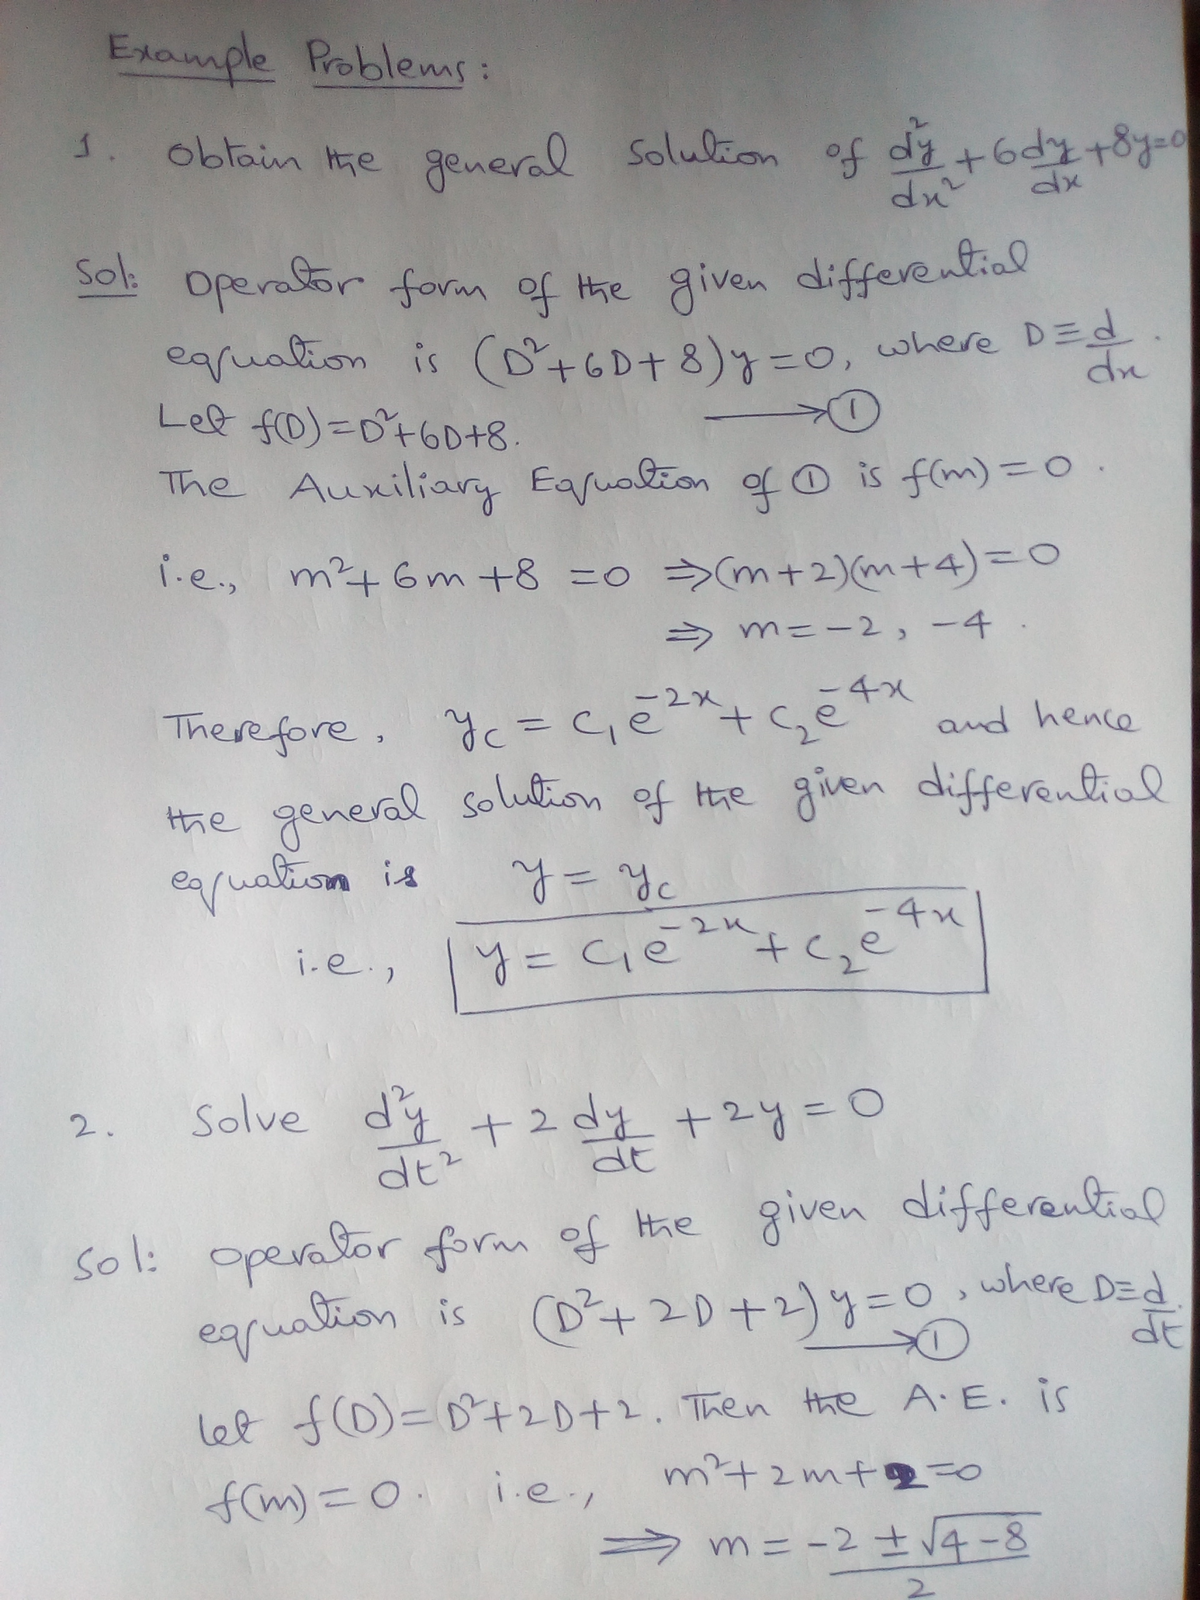 Example Problems:
1. Obtain the general solution of d²y/dx² + 6dy/dx + 8y=0
Sol: Operator form of the given differential
equation is (D²+6D+8)y=0, where D≡d/dx.
Let f(D)=D²+6D+8. → ①
The Auxiliary Equation of ① is f(m)=0.
i.e., m²+6m+8 =0 ⇒(m+2)(m+4)=0
⇒ m=-2, -4.
Therefore, y_c = c₁e^{-2x} + c₂e^{-4x} and hence
the general solution of the given differential
equation is y = y_c
i.e., y = c₁e^{-2x} + c₂e^{-4x}
2. Solve d²y/dt² + 2 dy/dt + 2y = 0
Sol: Operator form of the given differential
equation is (D²+2D+2)y=0, where D≡d/dt.
→ ①
Let f(D)=D²+2D+2. Then the A.E. is
f(m)=0. i.e., m²+2m+2=0
⟹ m = (-2 ± √(4-8))/2